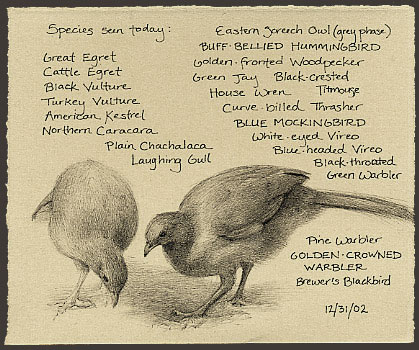 Species seen today:
Great Egret
Cattle Egret
Black Vulture
Turkey Vulture
American Kestrel
Northern Caracara
Plain Chachalaca
Laughing Gull
Eastern Screech Owl (grey phase)
BUFF-BELLIED HUMMINGBIRD
Golden-fronted Woodpecker
Green Jay Black-crested
House Wren Titmouse
Curve-billed Thrasher
BLUE MOCKINGBIRD
White-eyed Vireo
Blue-headed Vireo
Black-throated
Green Warbler
Pine Warbler
GOLDEN-CROWNED
WARBLER
Brewer's Blackbird
12/31/02